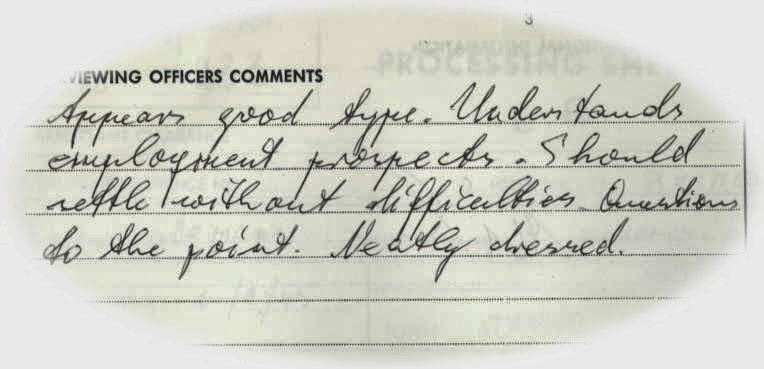 3
VIEWING OFFICERS COMMENTS
Appears good type. Understands
employment prospects. Should
settle without difficulties. Questions
to the point. Neatly dressed.